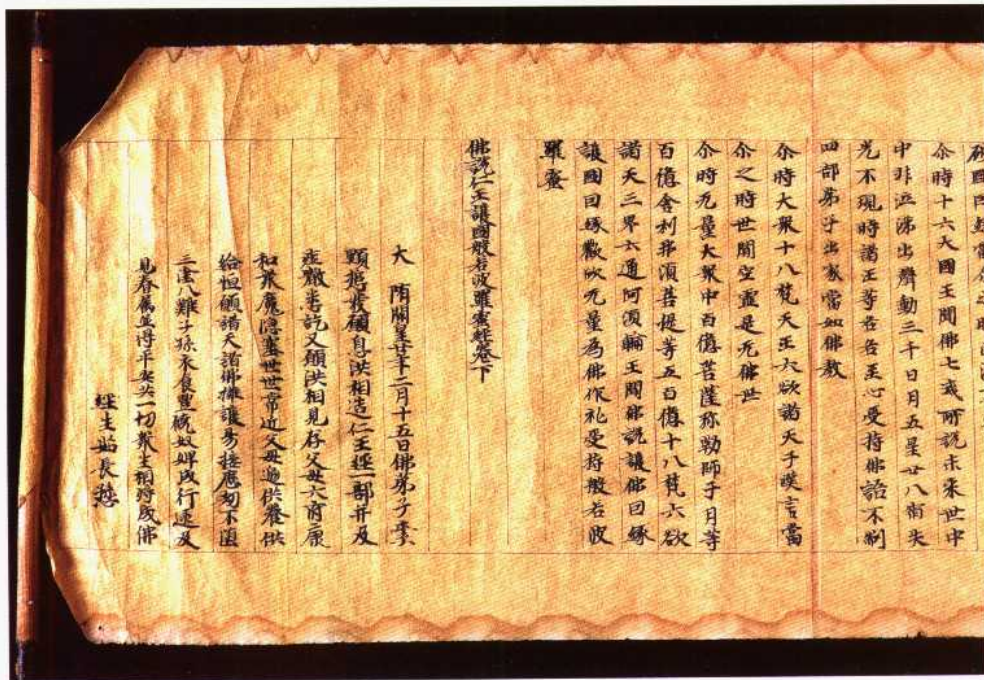 尒時十六大國王聞佛七戒所說未來世中
中非泣涕出聲動三千日月五星廿八宿失
光不現時諸王等各各至心受持佛語不制
四部弟子出家當如佛教
尒時大眾十八梵天王六欲諸天子嘆言當
尒之時世間空虛是无佛世
尒時无量大眾中百億菩薩弥勒師子月等
百億舍利弗須菩提等五百億十八梵六欲
諸天三界六道阿須輪王聞佛說護佛因緣
護國因緣歡欣无量為佛作礼受持般若波
羅蜜
佛說仁王護國般若波羅蜜經卷下
大隋開皇 年二月十五日佛弟子
息洪相造仁王經一部并及
訖又願洪相見存父母六府康
和眾魔隱塞世世常近父母 供養供
給恒願諸天諸佛擁護 接應 不
三塗八難子孫衣食豊饒奴婢成行逮及
見眷屬並得平安共一切眾生相將成佛
經生 長